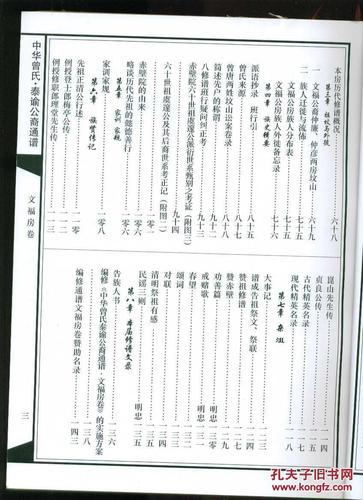 本房历代修谱概况 六十八
第三章 祖坟与外徙
一 文福公裔仲廉、仲彦两房坟山 六十九
二 族人迁徙与流佈
文福公房族人分布表 七十五
文福公房族人外徙备忘录 七十六
第四章 族史精要
派语抄录 班行引 八十五
曾氏来源 八十七
曾唐两姓坟山讼案卷录 八十八
简述先户的称谓
八修谱班行疑问纠正考 九十三
赤壁院六十世祖虞邃公派衍世系甄别之考证（附图三）
六十世祖虞邃公及其后裔世系考正记（附图二） 九十四
赤壁院的由来 一〇六
略谈历代先祖的懿德善行 一〇六
第五章 家训 家规
家训家规 一〇八
第六章 族贤传记
先祖正清公行述 一一〇
例授登士郎梅亭公传 一一二
例授修职郎理堂先生传 一一三
中华曾氏·泰谕公裔通谱
文福房卷
三
崑山先生传 一一四
贞良公传
古代精英名录
现代精英名录 一一八
第七章 杂俎
大事记
谱成告祖祭文、祭联 一二三
赞祖修谱
赞赤壁 一二七
劝善篇 明忠 一三〇
戒赌歌 明忠
春望
颂词
对联
清明祭祖有感
民谣三则 明忠 一三五
第八章 本届修谱文录
告族人书 一三六
编修《中华曾氏泰谕公裔通谱·文福房卷》的实施方案 一三八
编修通谱文福房卷赞助名录 一四三
孔夫子旧书网
www.kongfz.com